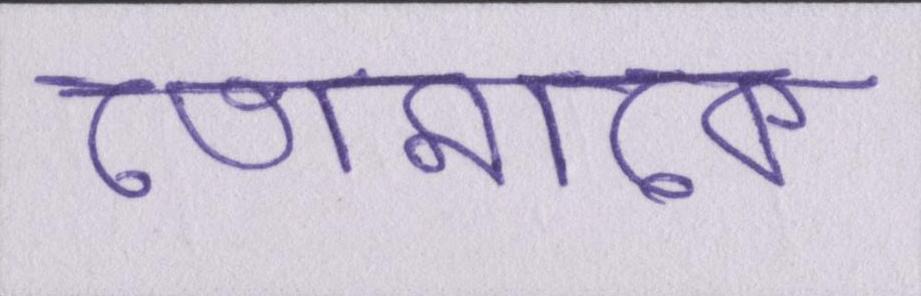 তোমাকে